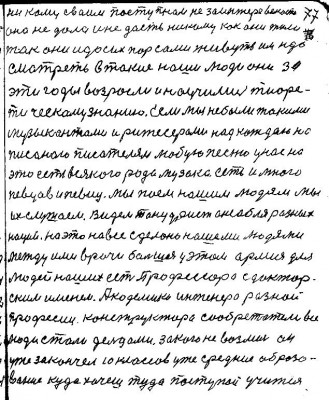 ни кому своим поступком не заинтересовала 77
она не дала и не даст никому как они жили
так они и до сих пор сами живут им надо
смотреть в такие наши люди они за
эти годы возросли и научились теоре-
тическому знанию. Если мы небыли такими
музыкантами и ритесерами над каждою на
писаного писателям любую песню у нас на
это есть всякого рода музыка есть и много
певцов и певиц. Мы поем нашим людям мы
их слушаем. Видел танцы ансабля разных
наций. на это на все сделоно нашеми людями
между ими врачи большея у этом армия для
людей наших есть Професcора с доктор-
ским именем. Академики инженера разной
профессии. конструктора сообретотели все
люди стали делдоми, за кого не возмись он
уже закончел 10 классов уже средние образо-
вание куда хочеш туда поступай учится